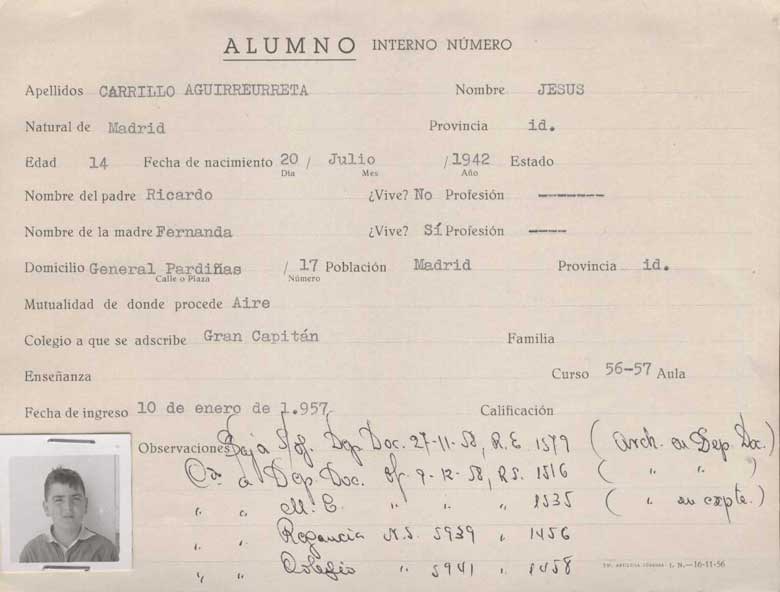 ALUMNO INTERNO NÚMERO
Apellidos CARRILLO AGUIRREURRETA Nombre JESUS
Natural de Madrid Provincia id.
Edad 14 Fecha de nacimiento 20 / Julio / 1942 Estado
Dia Mes Año
Nombre del padre Ricardo ¿Vive? No Profesión ————
Nombre de la madre Fernanda ¿Vive? Sí Profesión ———
Domicilio General Pardiñas / 17 Población Madrid Provincia id.
Calle o Plaza Número
Mutualidad de donde procede Aire
Colegio a que se adscribe Gran Capitán Familia
Enseñanza Curso 56-57 Aula
Fecha de ingreso 10 de enero de 1.957 Calificación
Observaciones Dep. Doc. 27-11-58, R.E 1579 (Arch. en Dep. Doc.)
a Dep. Doc. 9-12-58, R.S. 1516 ( " " )
" " M.E. " " 1535 ( " en expte.)
" " N.S. 5939 " 1456
" " Colegio " 5941 " 1458
I. N.—16-11-56